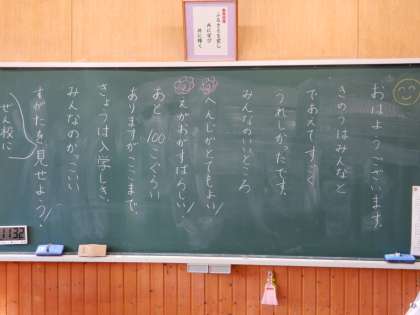 ふるさとを愛し
共に学び
共に輝く
おはようございます。
きのうはみんなと
であえてすごく
うれしかったです。
みんなのいいところ
へんじがとてもよい!
えがおがすばらしい!
あと100こぐらい
ありますがここまで。
きょうは入学しき。
みんなのかっこいい
すがたを見せよう!
ぜん校に
11:32